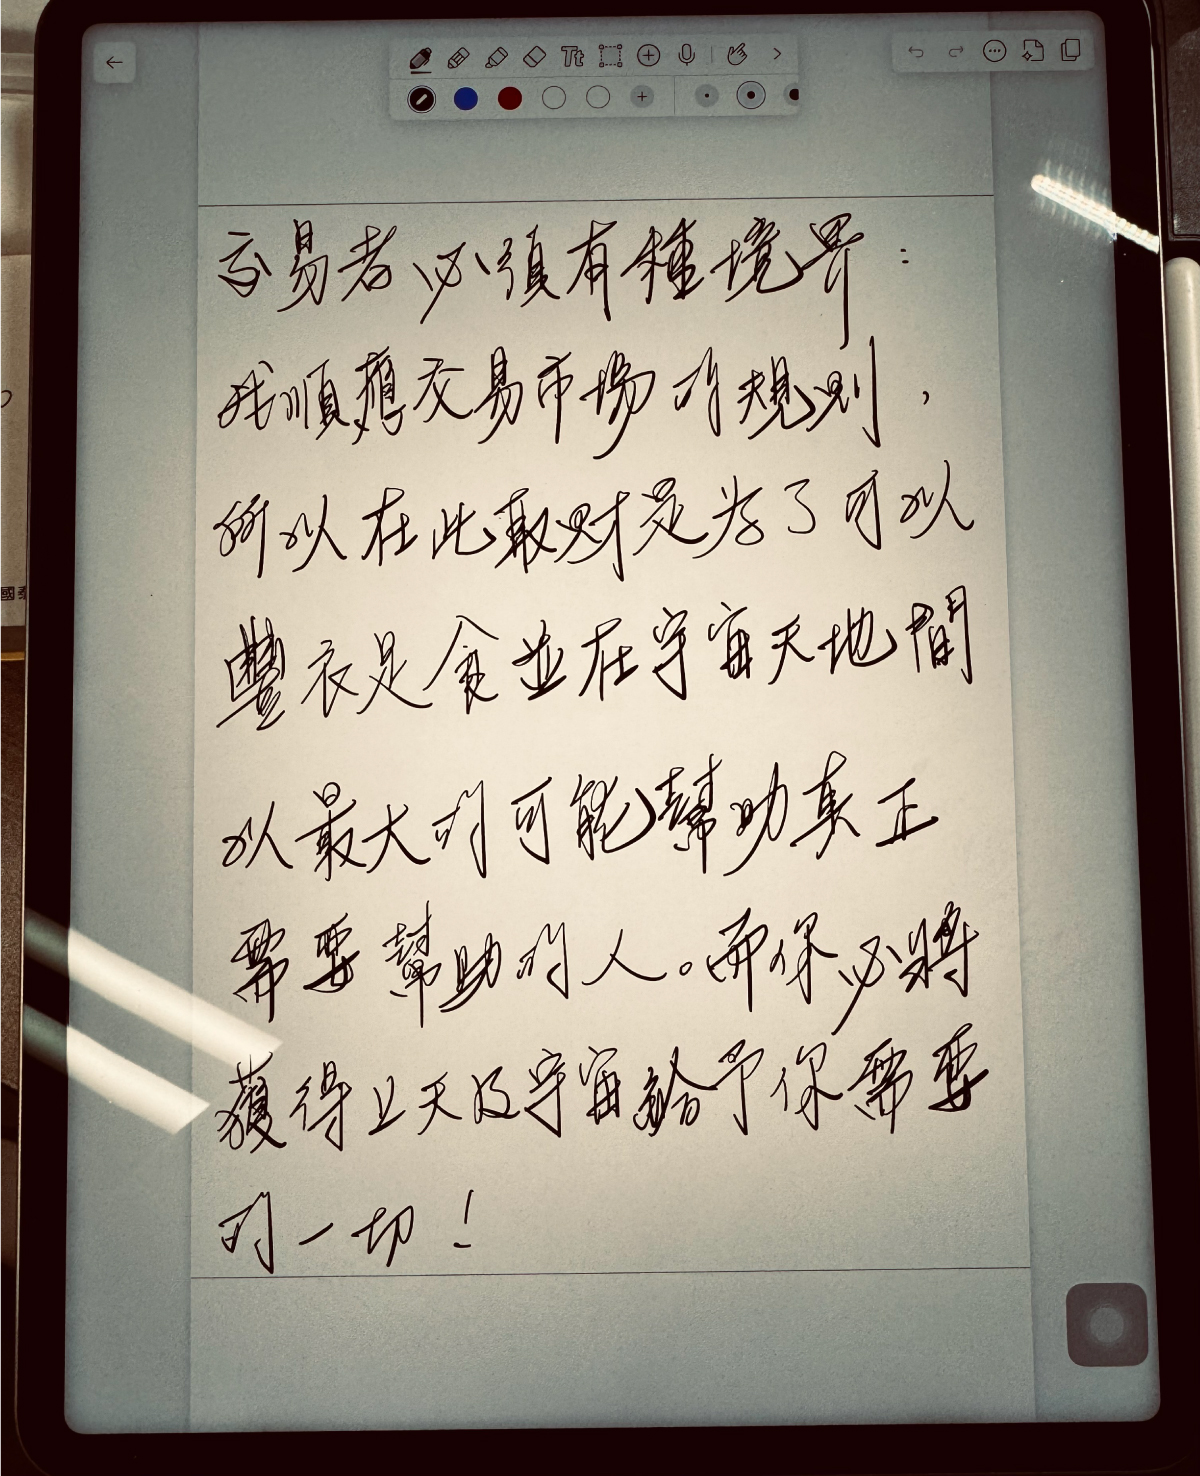 Tt
交易者必須有種境界：
我順應交易市場的規則，
所以在此取財是為了可以
豐衣足食並在宇宙天地間
以最大的可能幫助真正
需要幫助的人。而你必將
獲得上天及宇宙給予你需要
的一切！